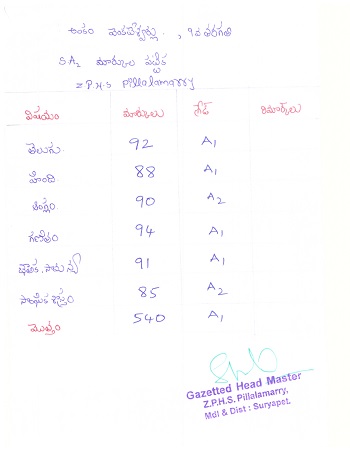 ఉంకం వెంకటేశ్వర్లు , 9వ తరగతి
S.A₂ మార్కుల పట్టిక
Z.P.H.S Pillalamarry
విషయం మార్కులు గ్రేడ్ రిమార్క్‌లు
తెలుగు 92 A₁
హింది 88 A₁
ఆంగ్లం 90 A₂
గణితం 94 A₁
భౌతిక, సామాన్య 91 A₁
సాంఘిక శాస్త్రం 85 A₂
మొత్తం 540 A₁
Gazetted Head Master
Z.P.H.S. Pillalamarry,
Mdl & Dist : Suryapet.